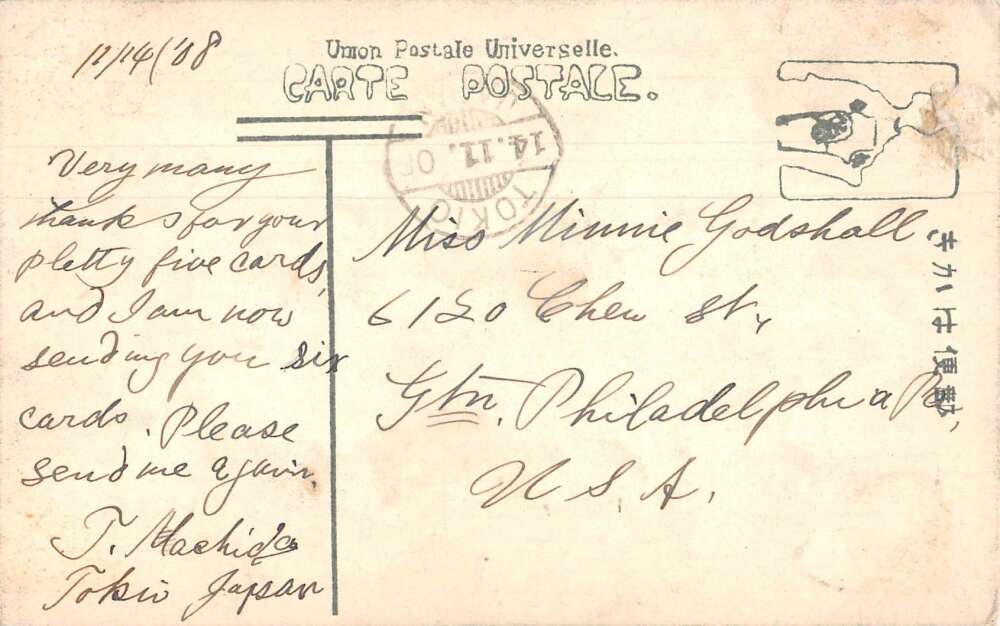 11/14/'08
Union Postale Universelle.
CARTE POSTALE.
14.11.08
TOKIO
Very many
thanks for your
pletty five cards,
and I am now
sending you six
cards. Please
send me again.
T. Machida
Tokio Japan
Miss Minnie Godshall,
6120 Chew St,
Gtn. Philadelphia Pa,
U S A.
きかは便郵